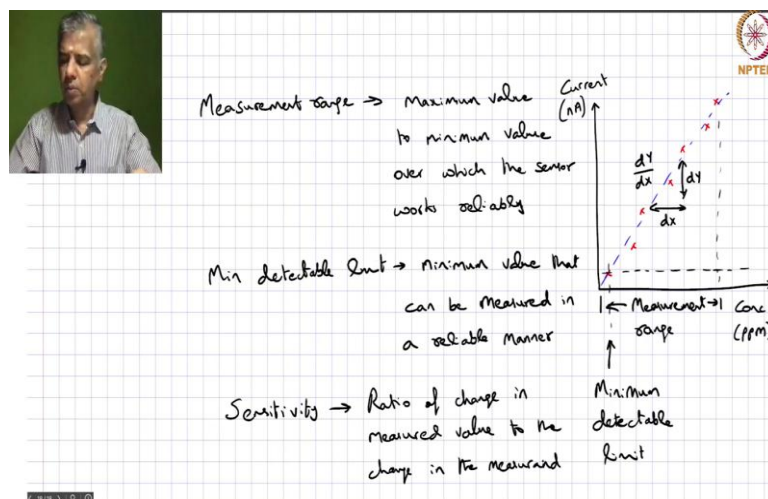 NPTEL
Measurement range → Maximum value
to minimum value
over which the sensor
works reliably
Min detectable limit → Minimum value that
can be measured in
a reliable manner
Sensitivity → Ratio of change in
measured value to the
change in the measurand
Current
(nA)
dY
dX
dY
dX
|← Measurement →|
range
Conc
(ppm)
Minimum
detectable
limit